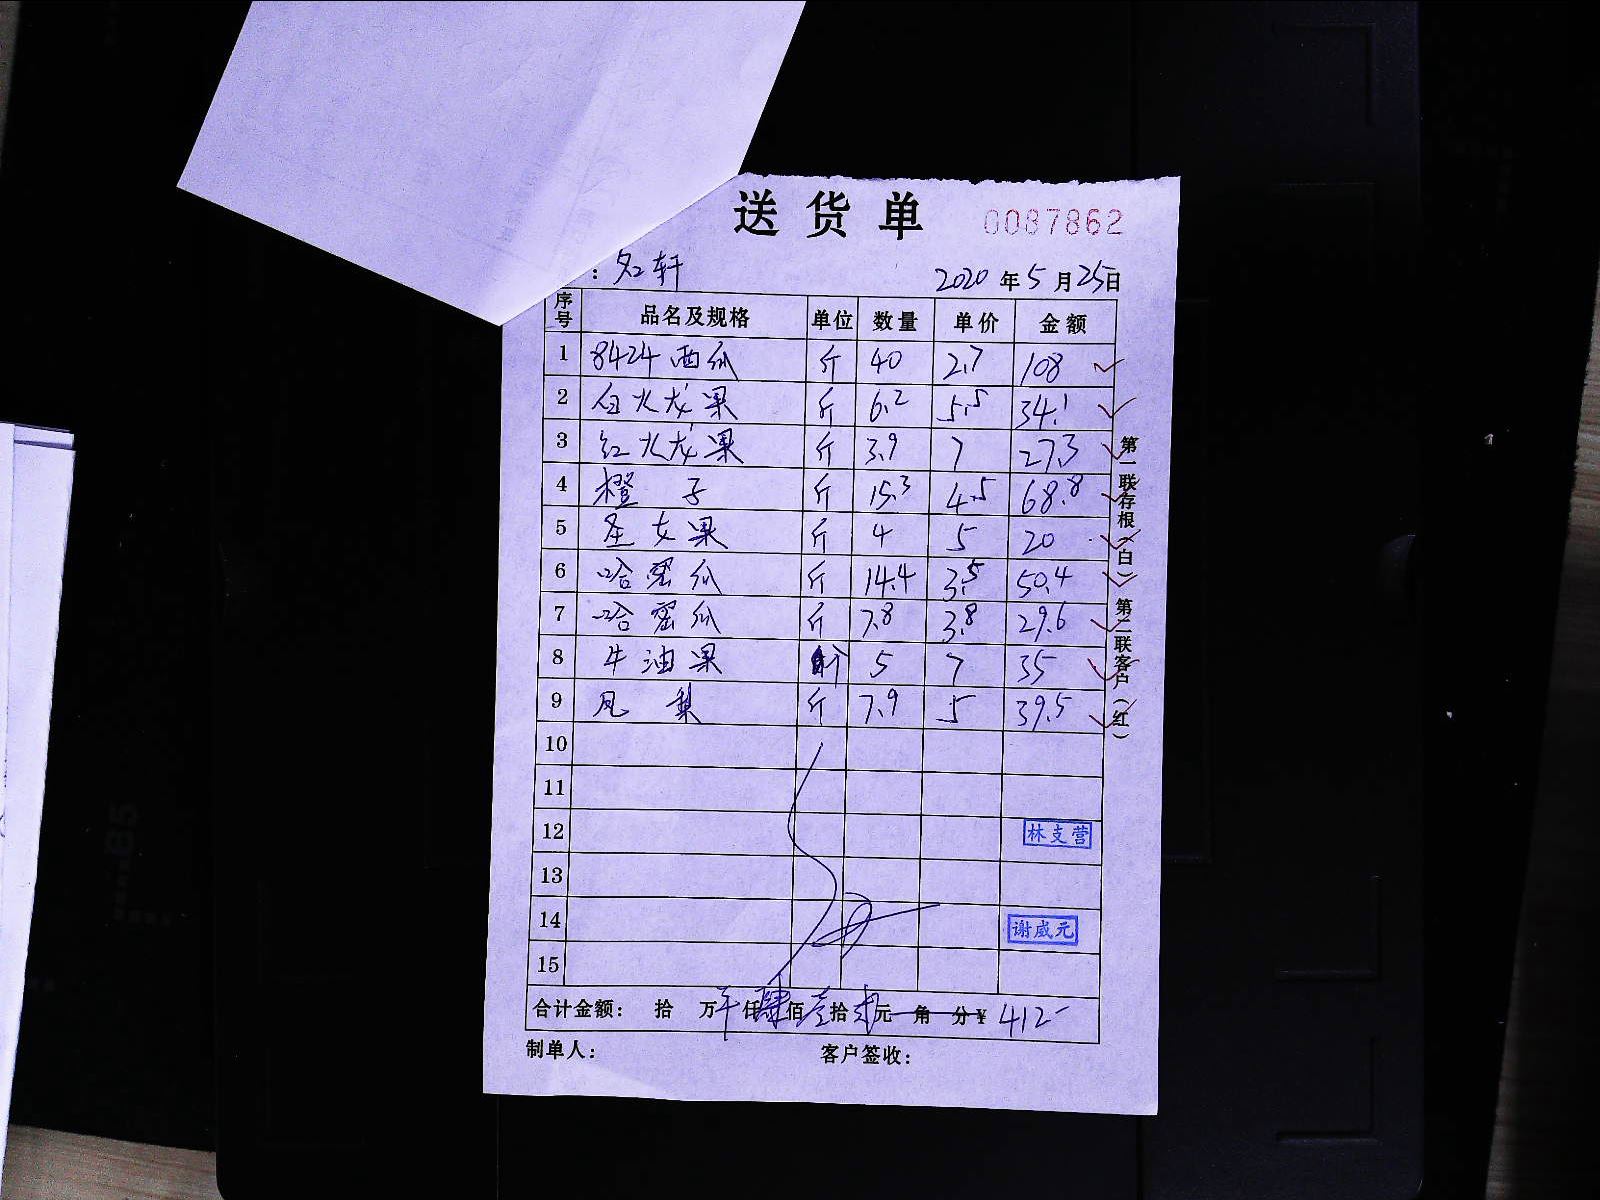 送货单 0087862
：名轩 2020年5月25日
序号 品名及规格 单位 数量 单价 金额
1 8424西瓜 斤 40 2.7 108
2 白火龙果 斤 6.2 5.5 34.1
3 红火龙果 斤 3.9 7 27.3
4 橙子 斤 15.3 4.5 68.8
5 圣女果 斤 4 5 20
6 哈密瓜 斤 14.4 3.5 50.4
7 哈密瓜 斤 7.8 3.8 29.6
8 牛油果 个 5 7 35
9 凤梨 斤 7.9 5 39.5
10
11
12 林支营
13
14 谢威元
15
合计金额： 拾 万 仟肆佰壹拾贰元 角 分￥ 412-
制单人： 客户签收：
第一联存根（白） 第二联客户（红）
B5